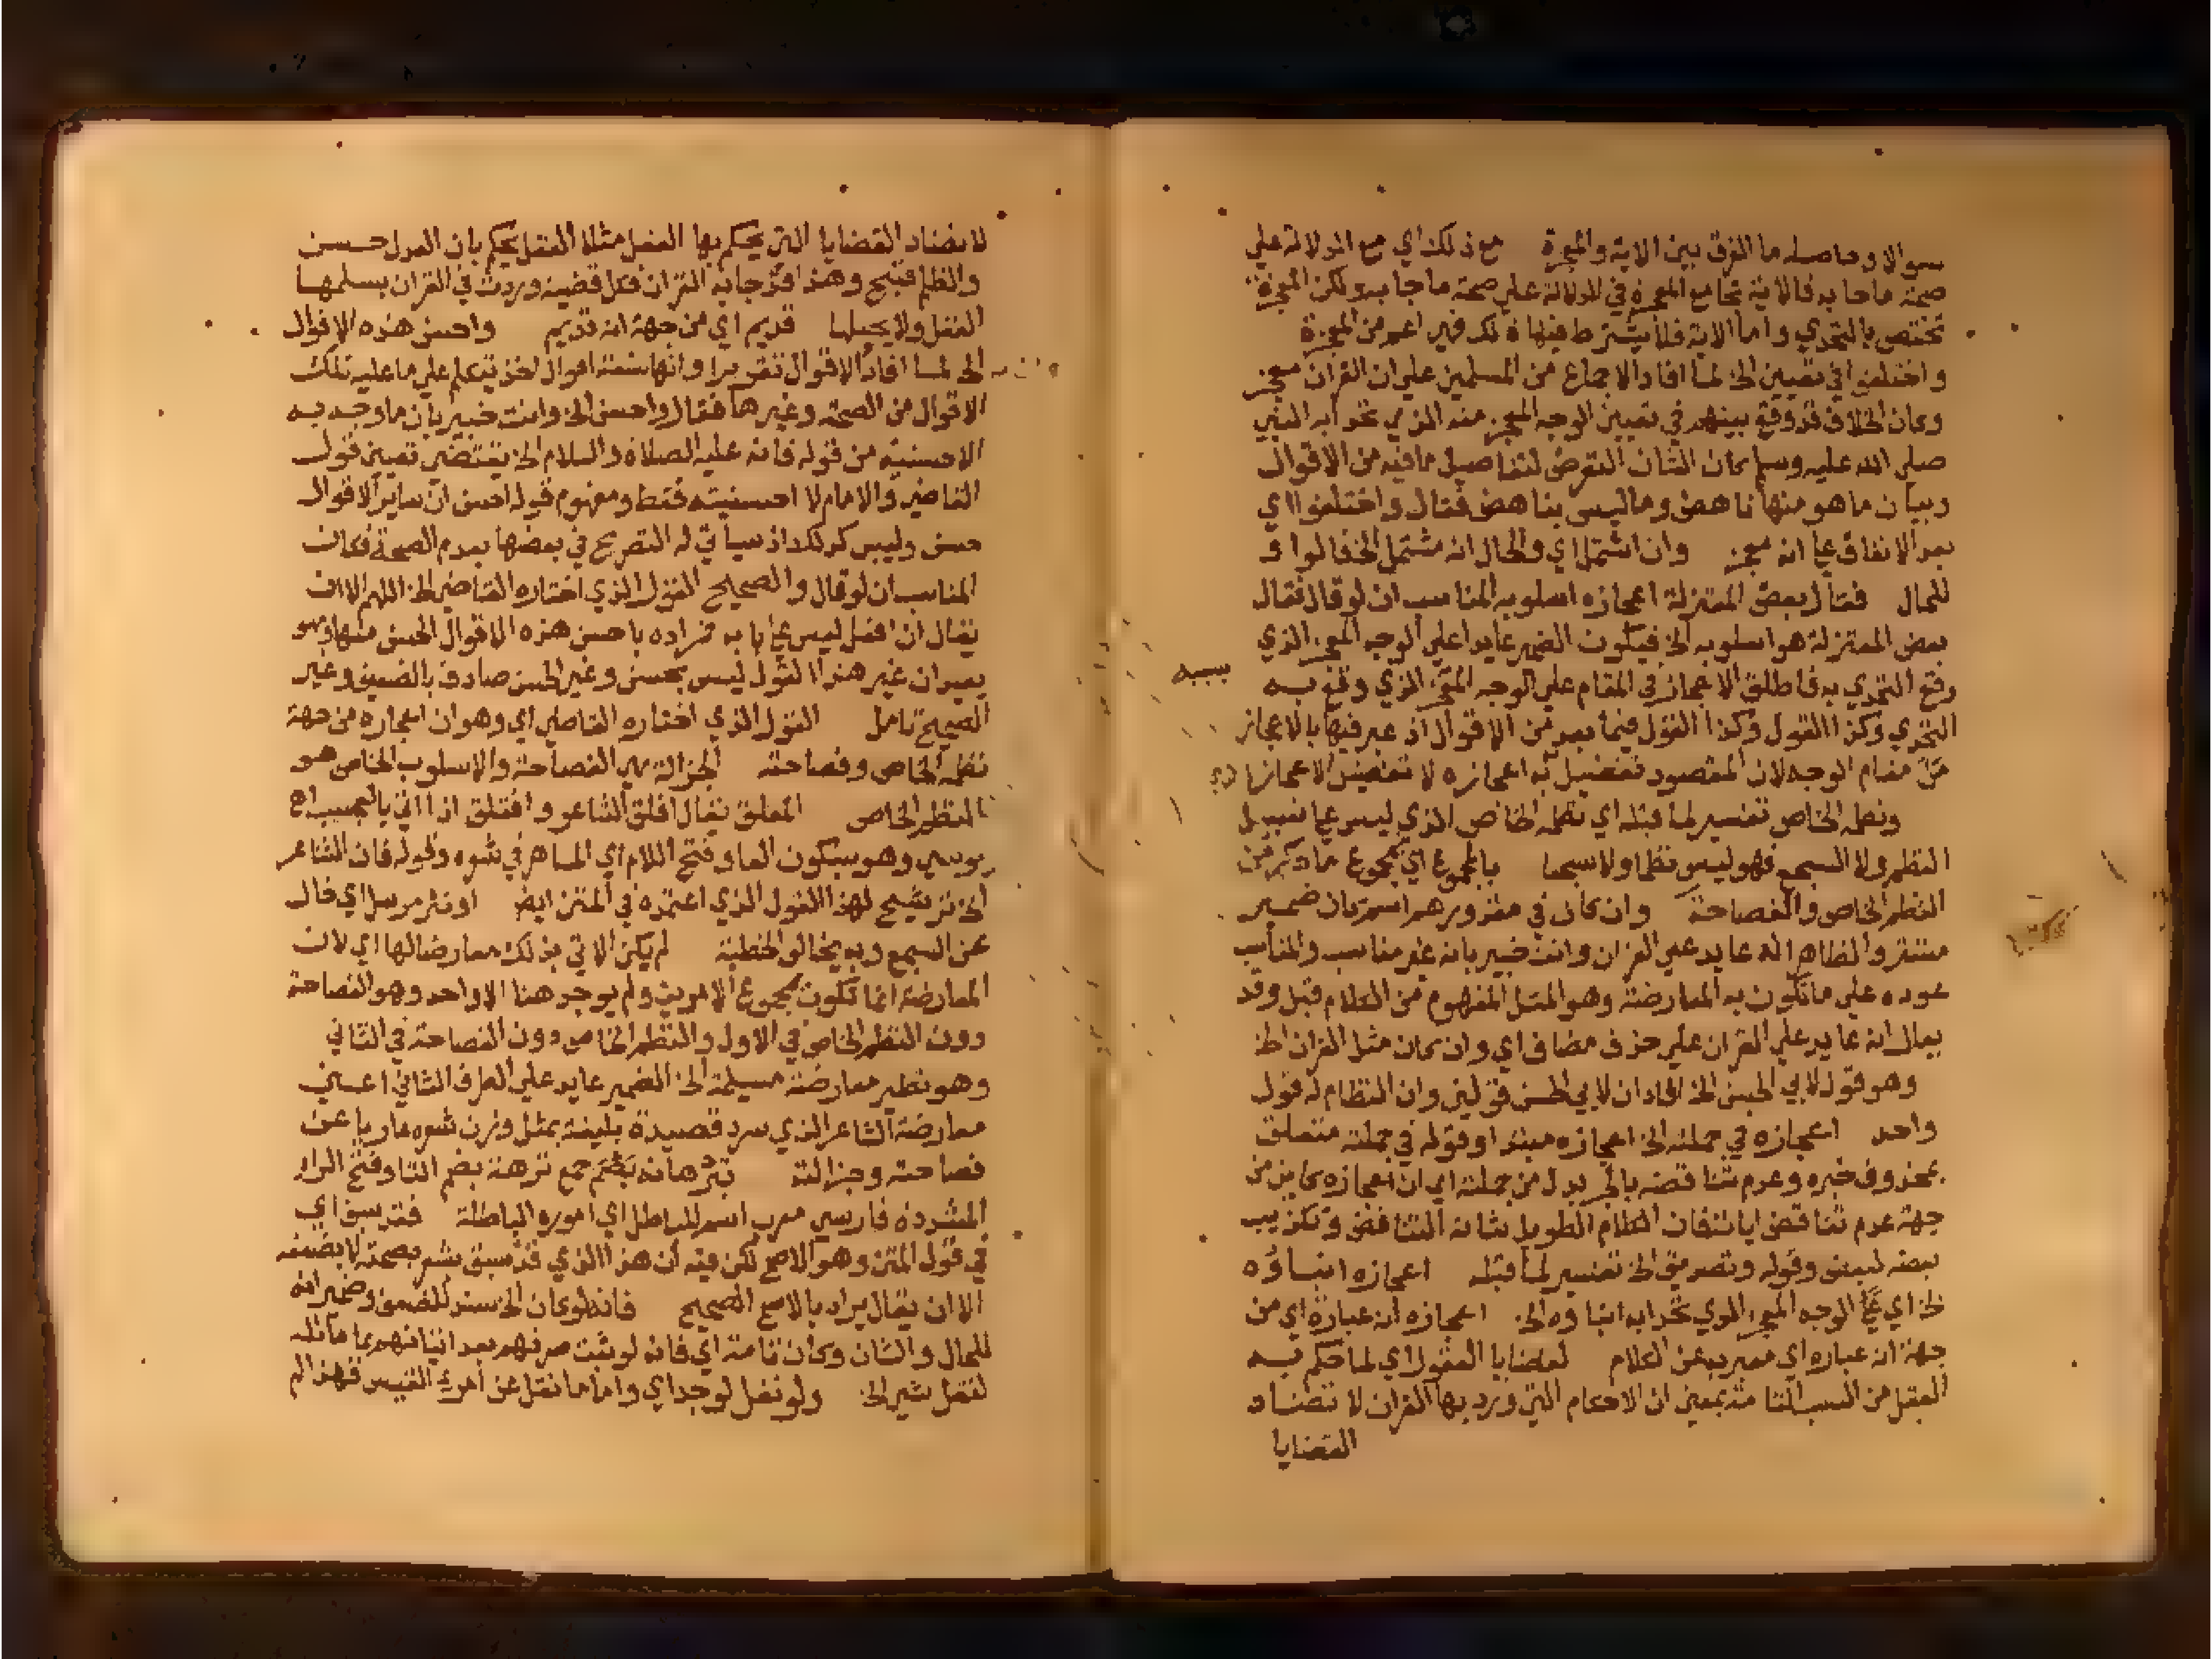 سوالا وحاصله ما الفرق بين الاية والمعجزة مع ذلك اي مع الدلالة علي
صحة ما جا به فالاية تجامع المعجزة في الدلالة علي صحة ما جا به ولكن المعجزة
تختص بالتحدي واما الاية فلا يشترط فيها ذلك فهي اعم من المعجزة
واختلفوا في تعيين الخ لما افاد الاجماع من المسلمين علي ان القران معجز
وكان الخلاف قد وقع بينهم في تعيين الوجه المعجز منه الذي تحدا به النبي
صلي الله عليه وسلم كان الشان التعرض لتفاصيل ما فيه من الاقوال
وبيان ما هو منها ناهض وما ليس بناهض فقال واختلفوا اي
بعد الاتفاق علي انه معجز وان اشتمل اي والحال انه مشتمل الخ فالواو
للحال فقال بعض المعتزلة اعجازه اسلوبه المناسب ان لو قال فقال
بعض المعتزلة هو اسلوبه الخ فيكون الضمير عايدا علي الوجه المعجز الذي
وقع التحدي به فاطلق الاعجاز في المقام علي الوجه الذي وقع به
التحدي وكذا القول وكذا القول فيما بعد من الاقوال اذ عبر فيها بالاعجاز
مقام الوجه لان المقصود تفصيل اعجازه لا تفصيل الاعجاز
ونظمه الخاص تفسير لما قبله اي نظمه الخاص الذي ليس علي سبيل
النظم ولا السجع فهو ليس نظما ولا سجعا بالمجموع اي مجموع ما ذكر من
النظم الخاص والفصاحة وان كان في مقدورهم اسم كان ضمير
مستتر والظاهر انه عايد علي القران وانت خبير بانه غير مناسب والمناسب
عوده علي ما تكون به المعارضة وهو المثل المفهوم من الكلام قبل وقد
يقال انه عايد علي القران علي حذف مضاف اي وان كان مثل القران الخ
وهو قول لابي الحسن الخ افاد ان لابي الحسن قولين وان النظام له قول
واحد اعجازه في جملته الخ اعجازه مبتدا وقوله في جملته متعلق
بمحذوف خبره وعدم تناقضه بالجر بدل من جملته اي ان اعجازه كاين من
جهة عدم تناقض اياته فان الكلام الطويل شانه التناقض وتكذيب
بعضه لبعض وقوله وتصديق الخ تفسير لما قبله اعجازه انباؤه
الخ اي علي الوجه المعجز الذي تحدا به انباوه الخ اعجازه انه عبارة اي من
جهة انه عبارة اي معبر به عن الكلام لقضايا العقول اي لما حكم به
العقل من النسب التامة بمعني ان الاحكام التي ورد بها القران لا تضاد
القضايا
لا تضاد القضايا التي يحكم بها العقل مثلا العقل يحكم بان العدل حسن
والظلم قبيح وهذا قد جا به القران فكل قضية وردت في القران يسلمها
العقل ولا يحيلها قديم اي من جهة انه قديم واحسن هذه الاقوال
الخ لما افاد الاقوال تقريرا وانها ستة اقوال اخذ يتكلم علي ما عليه تلك
الاقوال من الصحة وغيرها فقال واحسن الخ وانت خبير بان ما وجه به
الاحسنية من قوله فانه عليه الصلاة والسلام الخ يقتضي تعيين قول
القاضي والامام لا احسنيته فقط ومفهوم قوله احسن ان ساير الاقوال
حسن وليس كذلك اذ سياتي له التصريح في بعضها بعدم الصحة فكان
المناسب ان لو قال والصحيح القول الذي اختاره القاضي الخ اللهم الا ان
يقال ان افعل ليس علي بابه فمراده باحسن هذه الاقوال الحسن منها وهو
بعيد ان غير هذا القول ليس بحسن وغير الحسن صادق بالضعيف وغير
الصحيح تامل القول الذي اختاره القاضي اي وهو ان اعجازه من جهة
نظمه الخاص وفصاحته الجزالة هي الفصاحة والاسلوب الخاص هو
النظم الخاص المفلق يقال افلق الشاعر وافتلق اذا اتي بالعجيب اه
وهو بسكون الفا وفتح اللام اي الماهر في شعره وقوله فان الشاعر
الخ ترشيح لهذا القول الذي اعتمده في المتن ايضا او نثر مرسل اي خال
عن السجع وبه يخالف الخطبة لم يكن الاتي بذلك معارضا لها اي لان
المعارضة انما تكون بمجموع الامرين ولم يوجد هنا الا واحد وهو الفصاحة
دون النظم الخاص في الاول والنظم الخاص دون الفصاحة في الثاني
وهو نظير معارضة مسيلمة الخ الضمير عايد علي الطرف الثاني اعني
معارضة الشاعر الذي سرد قصيدة بليغة بمثل وزن شعره عاريا عن
فصاحته وجزالته بترهاته بضم جمع ترهة بضم التا وفتح الرا
المشددة فارسي معرب اسم للباطل اي اموره الباطلة فقد سبق اي
في قول المتن وهو الاصح لكن فيه ان هذا الذي قد سبق يشعر بصحته لا بضعفه
الا ان يقال يراد بالاصح الصحيح فانه لو كان الخ سند للضعف وضمير انه
للحال والشان وكان تامة اي فانه لو ثبت صرفهم بعد اتيانهم بما ماثله
لنقل شي الخ ولو نقل لوجد اي واما ما نقل عن امرئ القيس فهذا لم